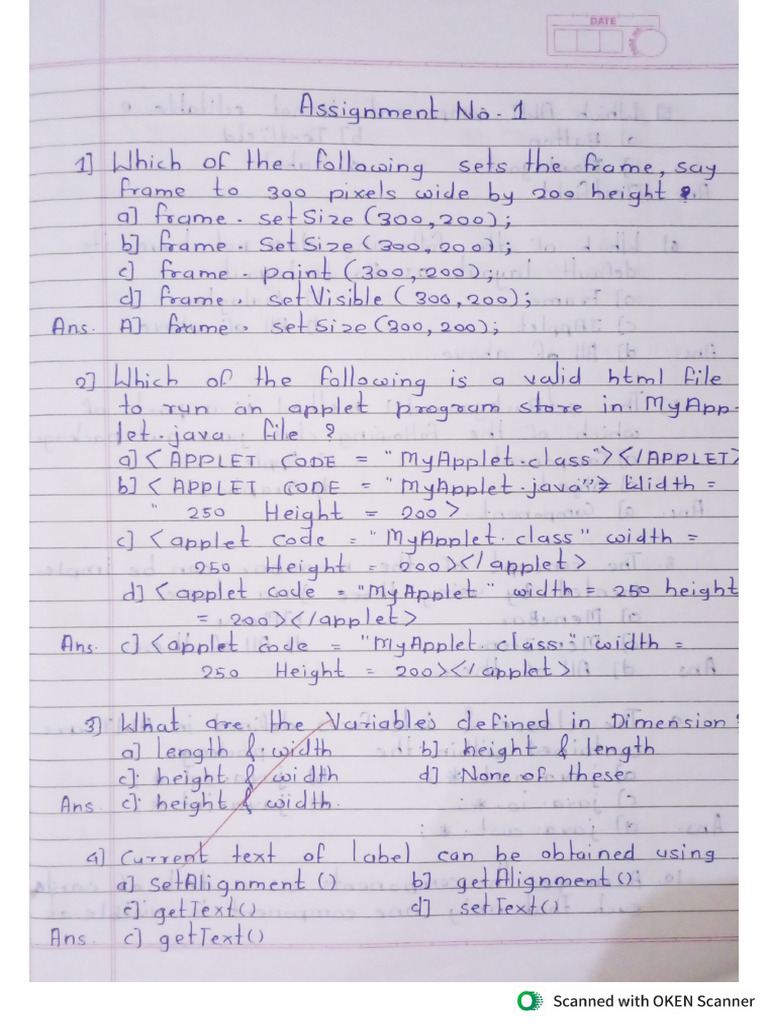 DATE
Assignment No. 1
1] Which of the following sets the frame, say
frame to 300 pixels wide by 200 height ?
a] frame. setSize (300,200);
b] frame. SetSize (300,200);
c] frame. paint (300,200);
d] frame. setVisible (300,200);
Ans. A] frame. setSize (300,200);
2] Which of the following is a valid html file
to run an applet program store in MyApp-
let.java file ?
a] <APPLET CODE = "MyApplet.class"></APPLET>
b] < APPLET CODE = "MyApplet.java"> Width =
" 250 Height = 200>
c] <applet code = "MyApplet.class" width =
250 Height = 200></applet>
d] <applet code = "MyApplet" width = 250 height
= 200></applet>
Ans. c] <applet code = "MyApplet.class." width =
250 Height = 200></applet>
3] What are the Variables defined in Dimension?
a] length & width b] height & length
c] height & width d] None of these
Ans c] height & width.
4] Current text of label can be obtained using
a] setAlignment () b] getAlignment ()
c] getText() d] setText()
Ans. c] getText()
Scanned with OKEN Scanner